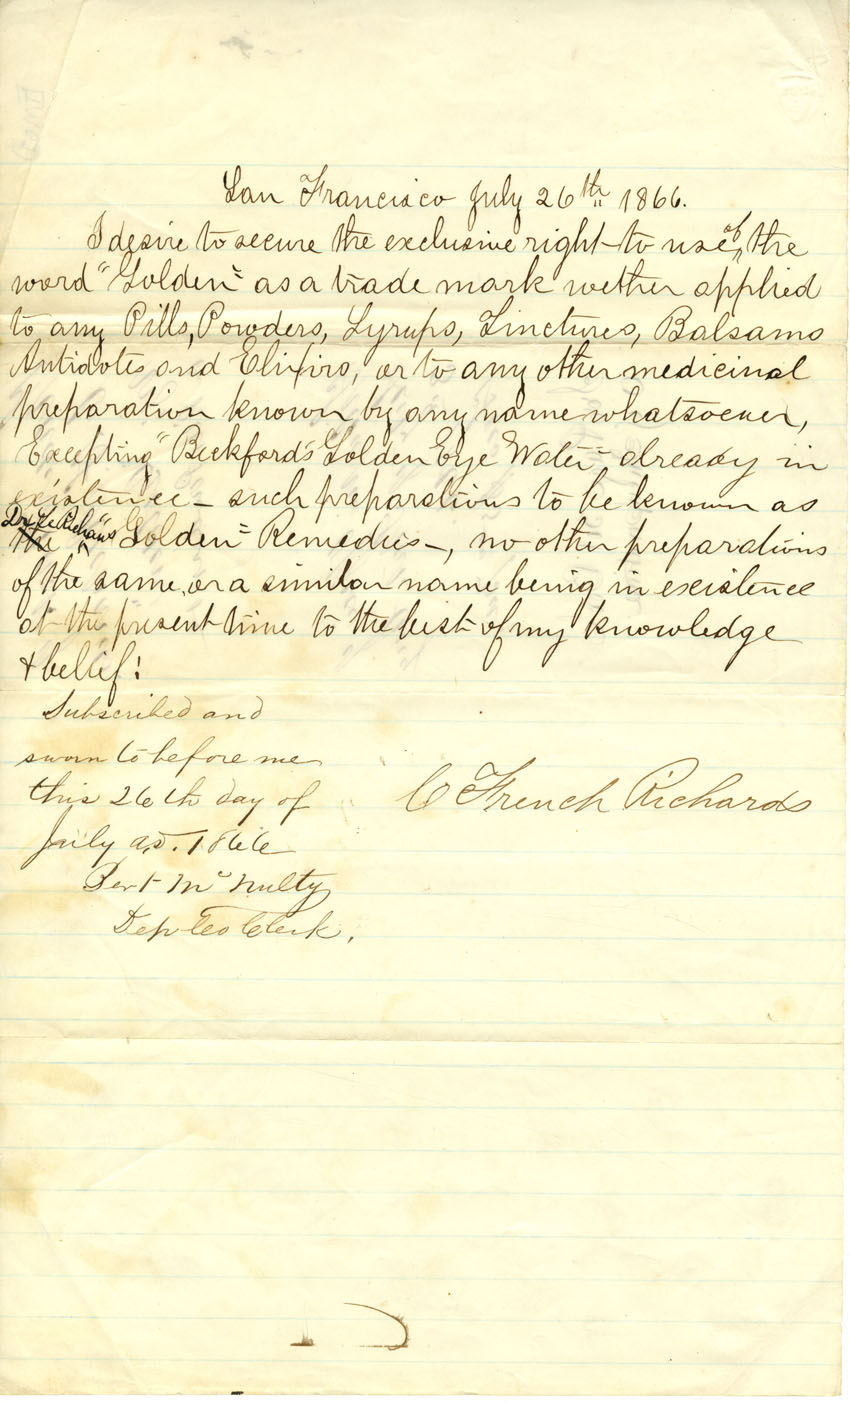 San Francisco July 26th 1866.
I desire to secure the exclusive right to use of the
word "Golden" as a trade mark wether applied
to any Pills, Powders, Syrups, Tinctures, Balsams
Antidotes and Elixirs, or to any other medicinal
preparation known by any name whatsoever,
Excepting "Bickford's Golden Eye Water" already in
existence – such preparations to be known as
Dr. Le Richau's
the "Golden" Remedies –, no other preparations
of the same, or a similar name being in existence
at the present time to the best of my knowledge
& belief!
Subscribed and
sworn to before me
this 26th day of
July A.D. 1866
C French Richards
Mc Nulty
Dep Co Clerk.